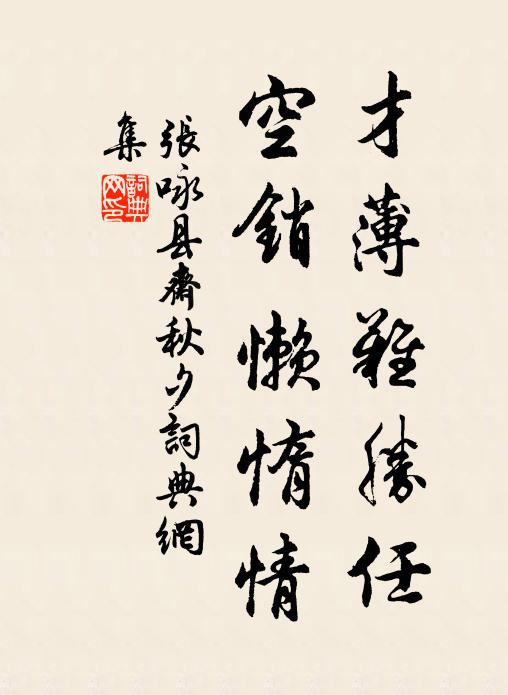 才薄難勝任
空銷懶惰情
張咏县齋秋夕詞典網
集
詞典
网印